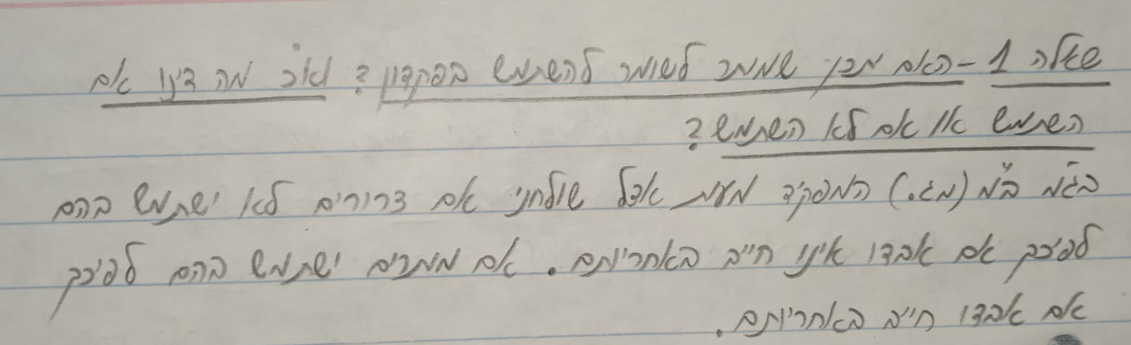 שאלה 1 - האם מובן שמותר לשומר להשתמש בפקדון? וא"כ מה דינו אם
השתמש או אם לא השתמש?
בגמ' ב"מ (מג.) המפקיד מעות אצל שולחני אם צרורים לא ישתמש בהם
לפיכך אם אבדו אינו חייב באחריותם. אם מותרים ישתמש בהם לפיכך
אם אבדו חייב באחריותם.